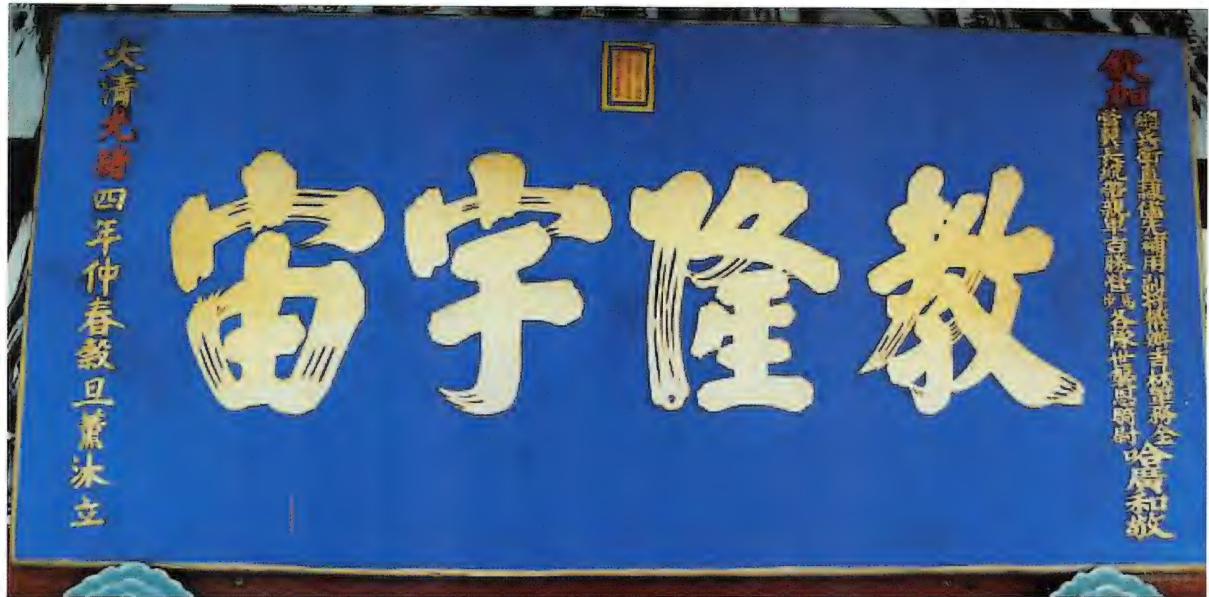 欽加
總兵銜直隸儘先補用副將辦吉林軍務全
營翼長統帶新軍吉勝營馬步各隊世襲恩騎尉
哈廣和敬
教隆宇宙
大清光緒四年仲春穀旦薰沐立